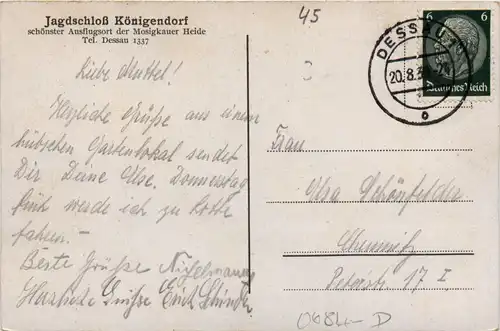 Jagdschloß Königendorf
schönster Ausflugsort der Mosigkauer Heide
Tel. Dessau 1337
45
DESSAU
20.8.3
o
6 6
Deutsches Reich
Liebe Muttel!
Herzliche Grüße aus einem
hübschen Gartenlokal sendet
Dir Deine Ilse. Donnerstag
früh werde ich zu Lotte
fahren. –
Beste Grüße
Herzliche Grüße Erich
Frau
Schönfelder
Chemnitz
Peterstr. 17 I